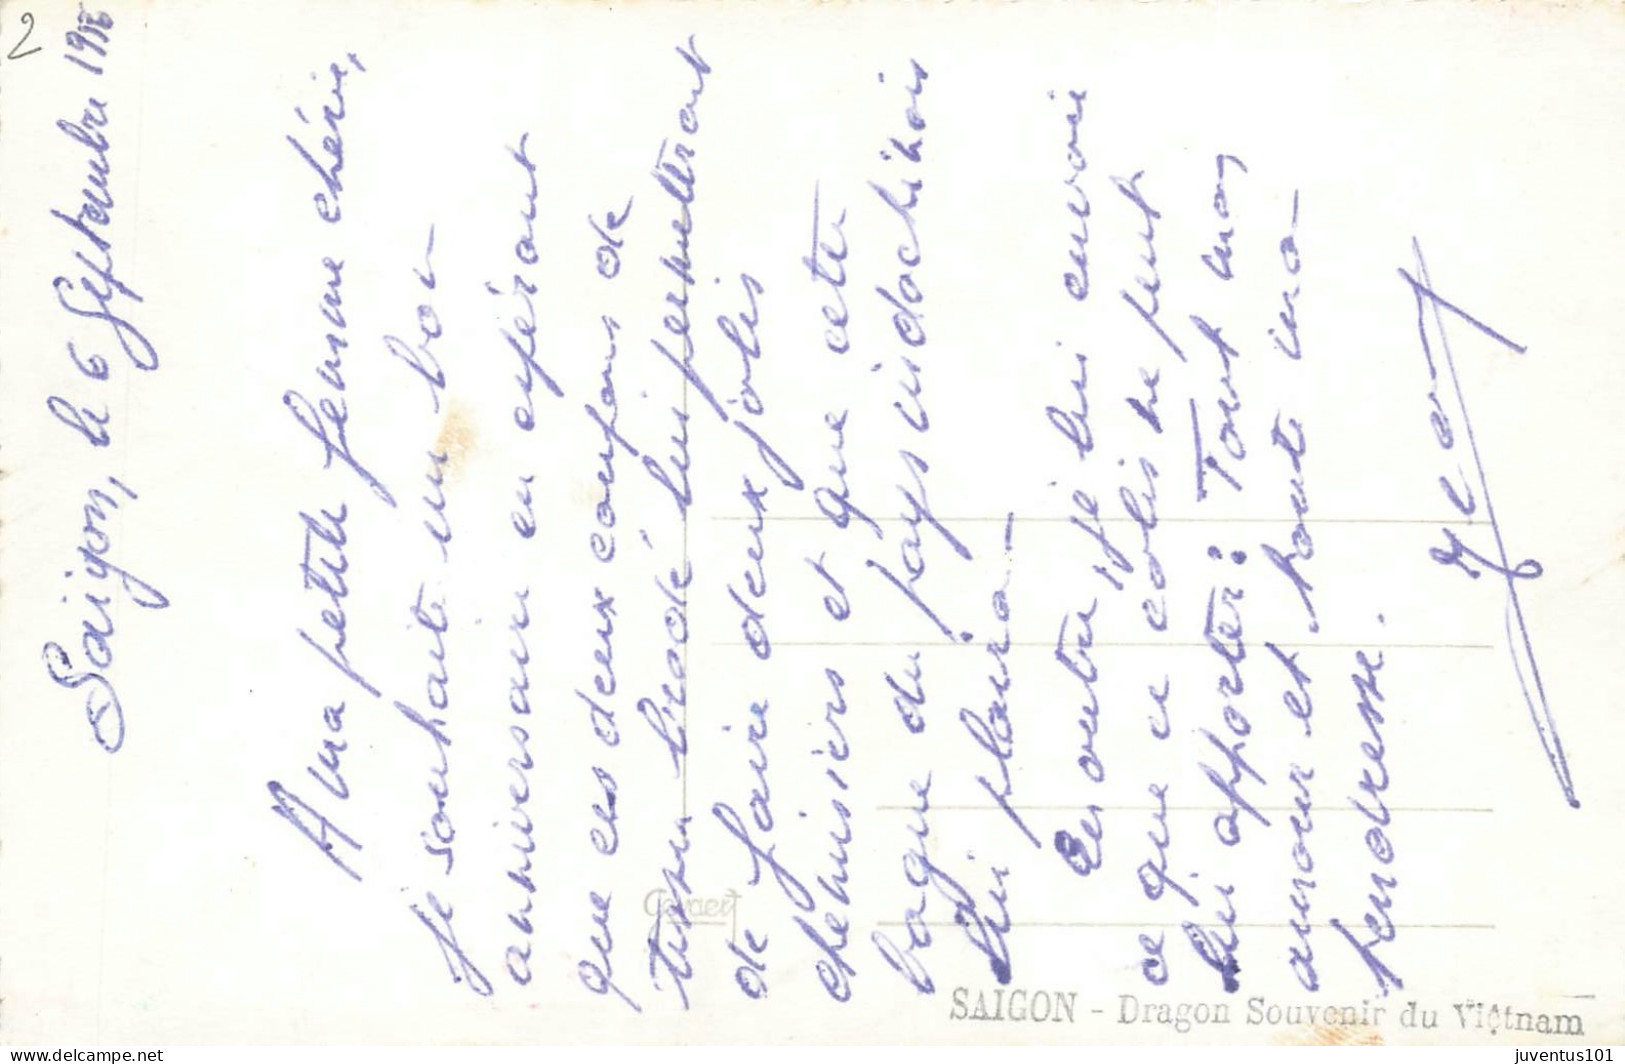 2
Saigon, le 6 Septembre 1955
A ma petite femme chérie,
je souhaite un bon
anniversaire en espérant
que ces deux coupons de
tissu brodé lui permettront
de faire deux jolis
chemisiers et que cette
bague du pays indochinois
lui plaira -
En outre, je lui envoie
ce que ce colis ne peut
lui apporter : Tout mon
amour et toute ma
tendresse.
Gevaert
SAIGON - Dragon Souvenir du Việtnam
juventus101
www.delcampe.net